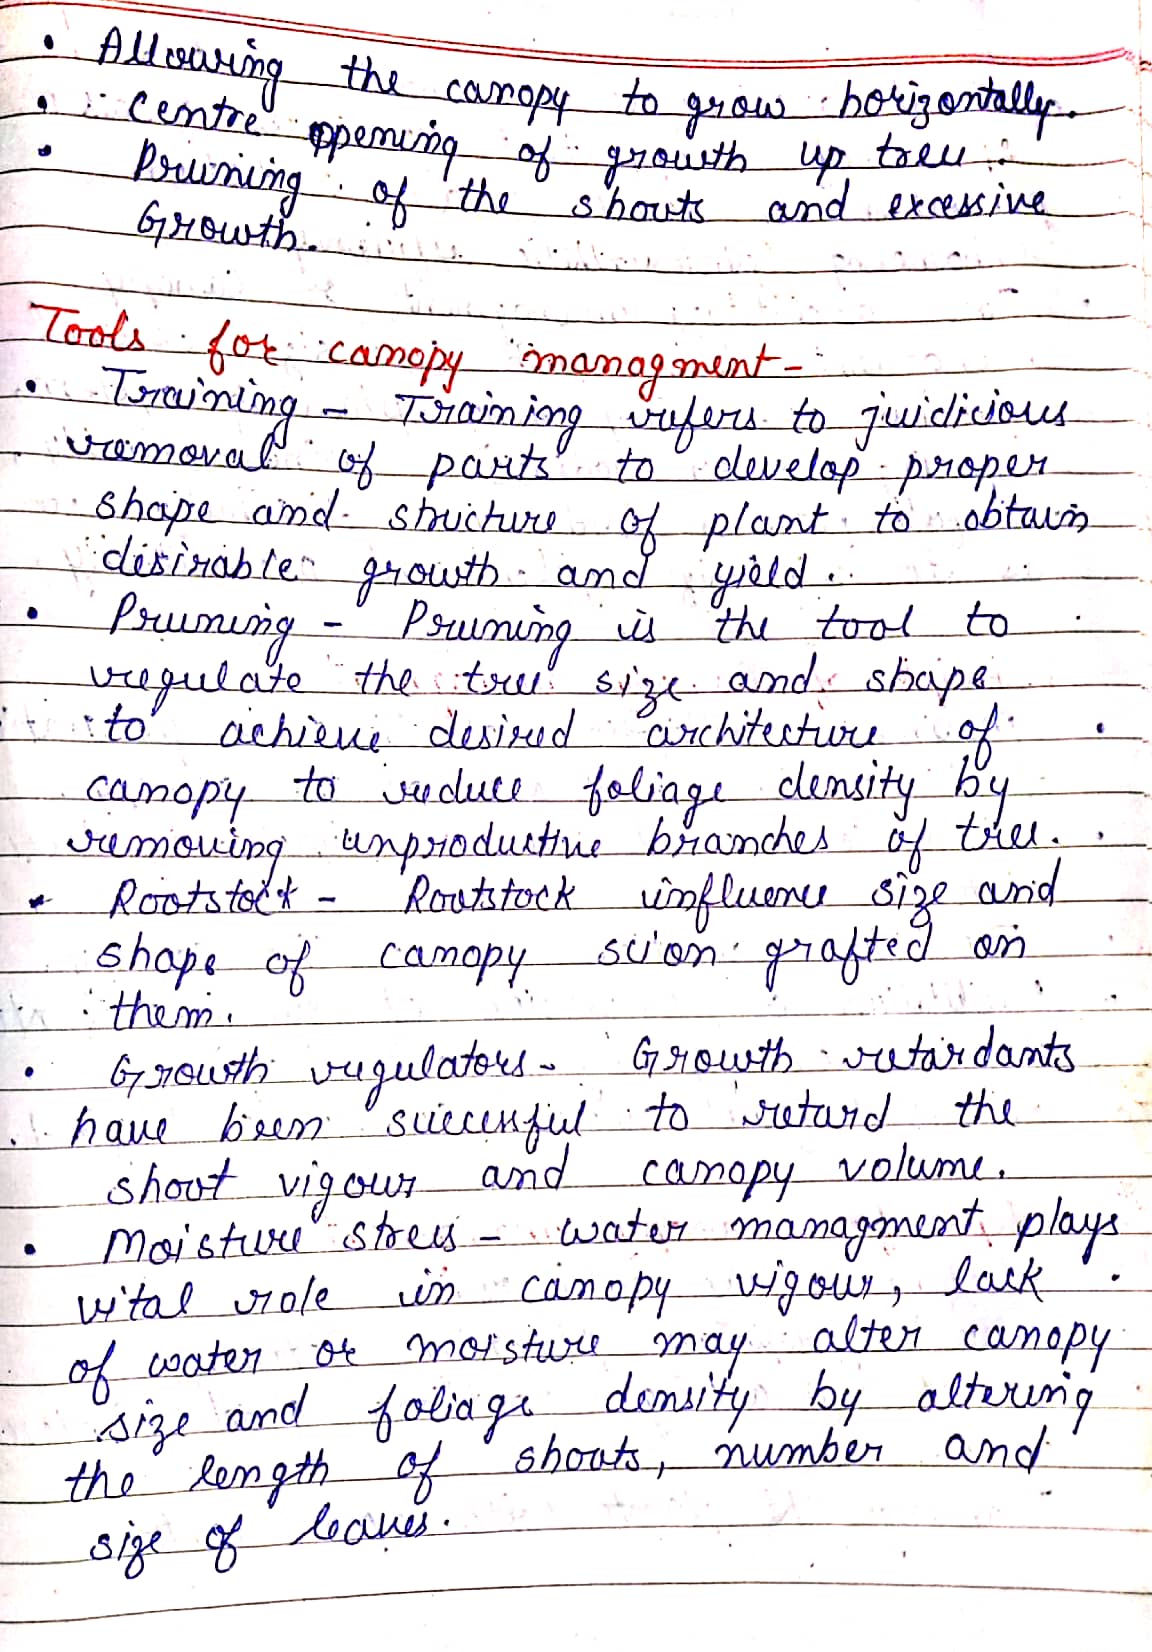 • Allowing the canopy to grow horizontally.
• Centre opening of growth up tree.
• Pruning of the shouts and excessive
Growth.
Tools for canopy managment -
• Training - Training refers to juidicious
removal of parts to develop proper
shape and structure of plant to obtain
desirable growth and yield.
• Pruning - Pruning is the tool to
regulate the tree size and shape
to achieve desired architecture of
canopy to reduce foliage density by
removing unproductive branches of tree.
• Rootstock - Rootstock influence size and
shape of canopy scion grafted on
them.
• Growth regulators - Growth retardants
have been successful to retard the
shoot vigour and canopy volume.
• Moisture stress - water managment plays
vital role in canopy vigour, lack
of water or moisture may alter canopy
size and foliage density by altering
the length of shoots, number and
size of leaves.